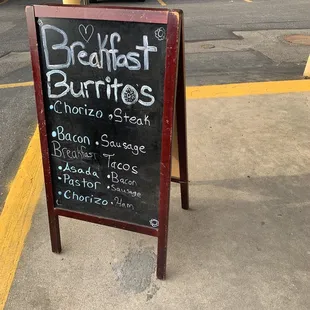 Breakfast
Burritos
•Chorizo •Steak
•Bacon •Sausage
Breakfast Tacos
•Asada •Bacon
•Pastor •Sausage
•Chorizo •Ham